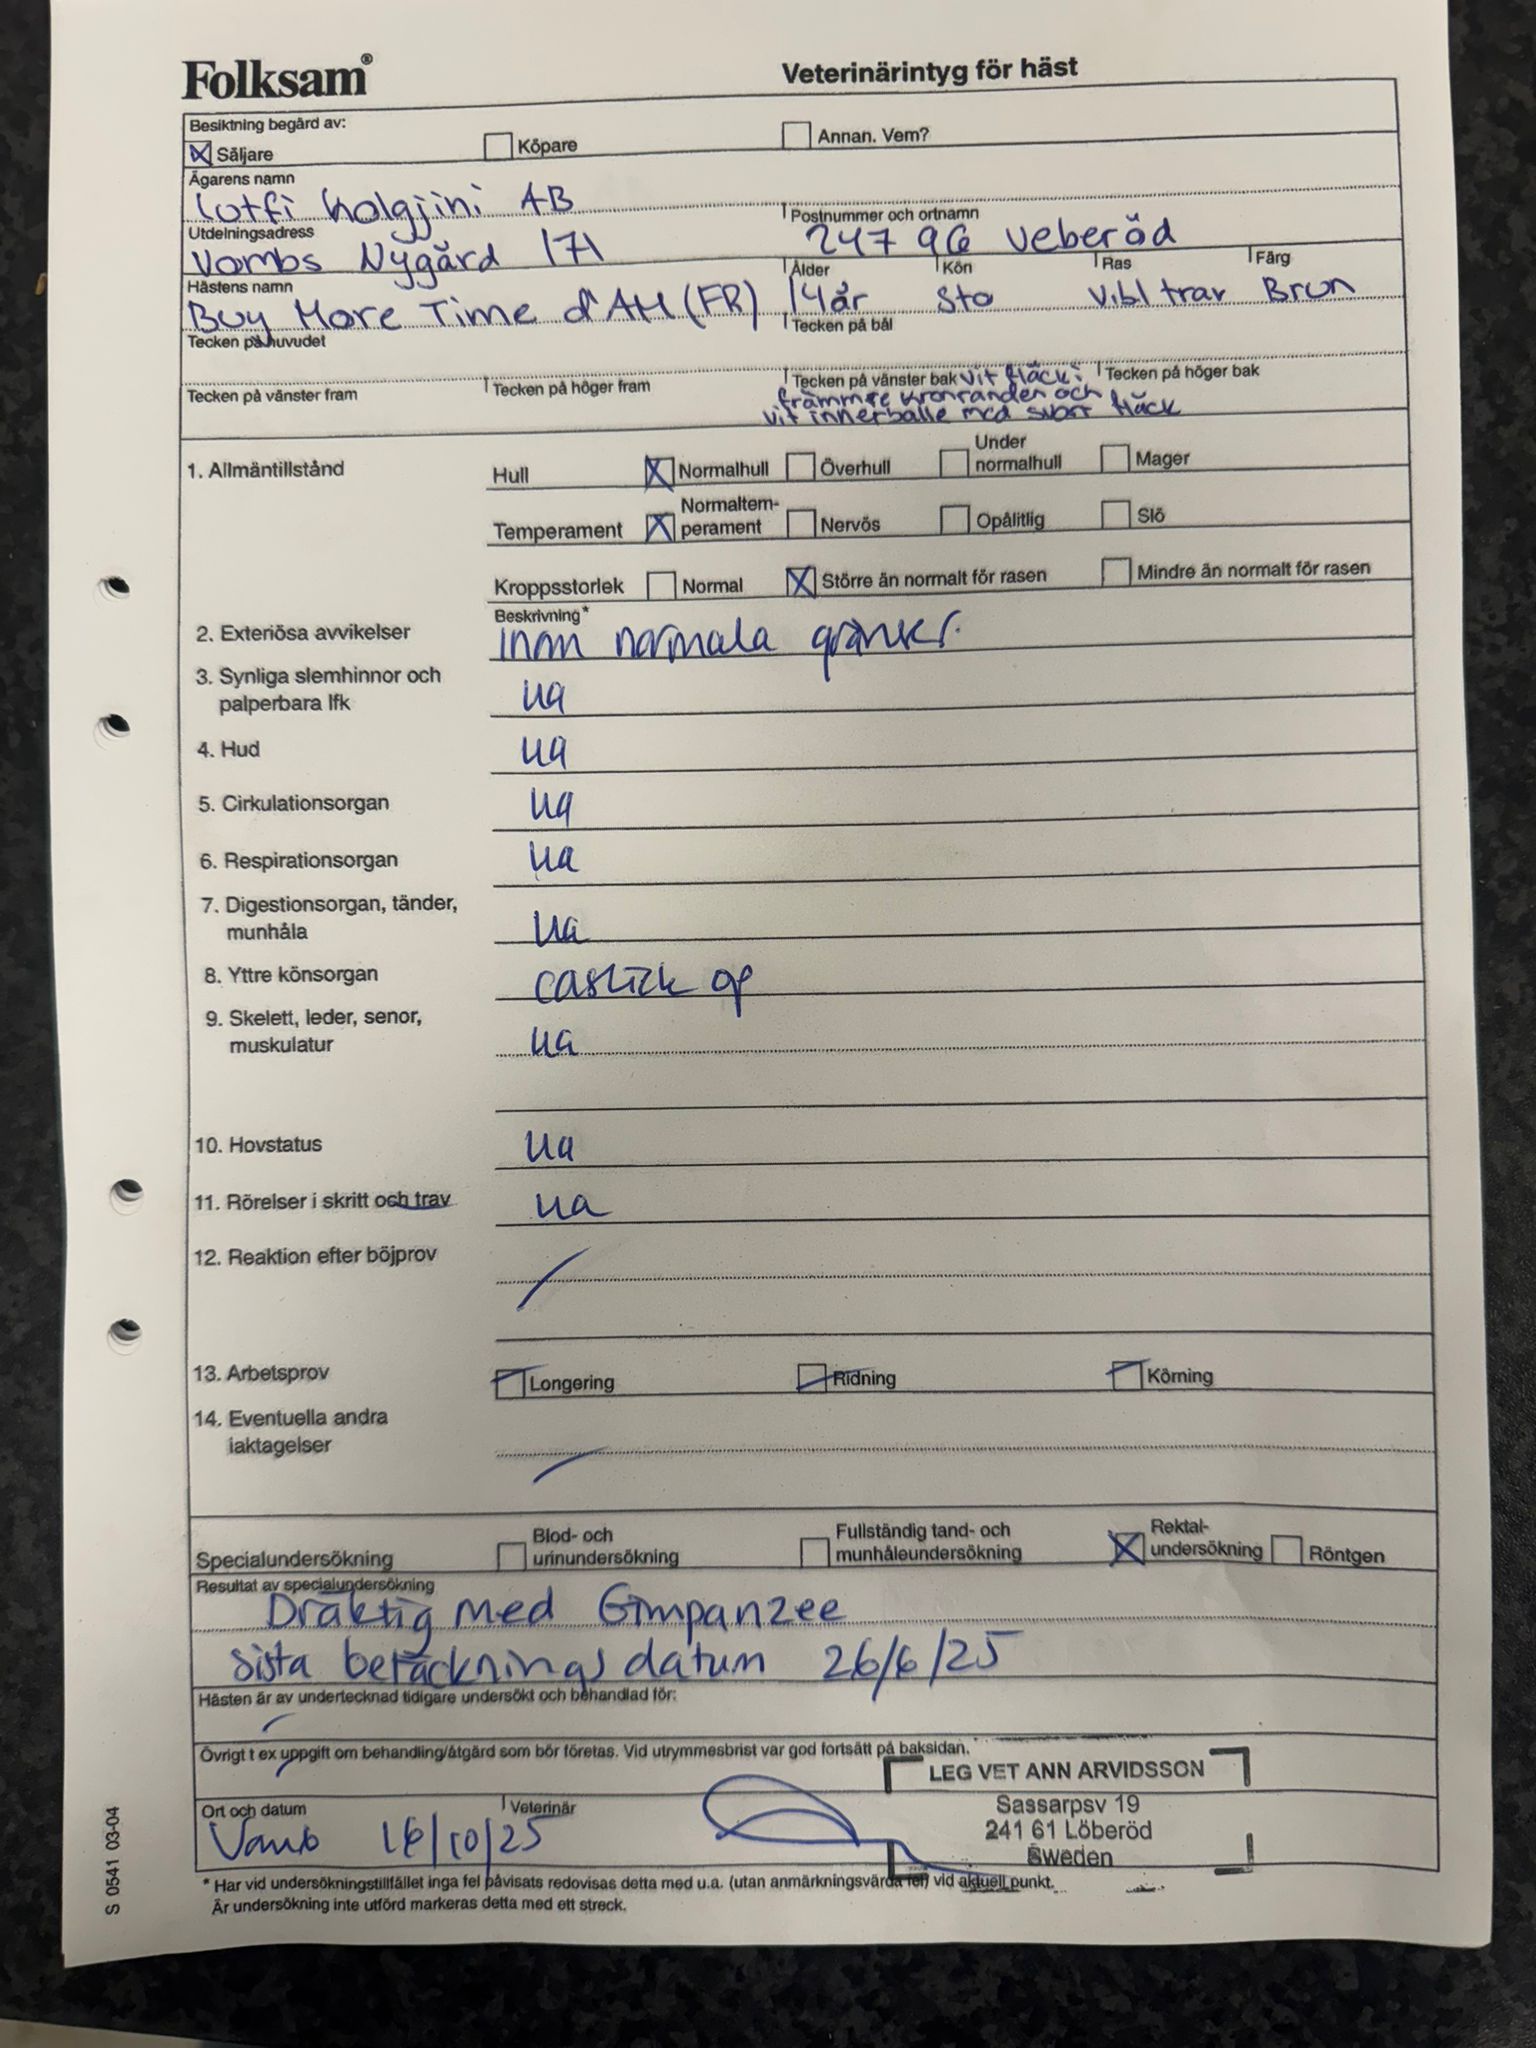 Folksam®
Veterinärintyg för häst
Besiktning begärd av:
Säljare Köpare Annan. Vem?
Ägarens namn
Lotfi Kolgjini AB
Utdelningsadress Postnummer och ortnamn
Vombs Nygård 171 247 96 Veberöd
Hästens namn Ålder Kön Ras Färg
Buy More Time d'AM (FR) 14 år Sto V.bl trav Brun
Tecken på huvudet Tecken på bål
Tecken på vänster fram Tecken på höger fram Tecken på vänster bak vit fläck i Tecken på höger bak
främmre kronranden och
vit innerballe med svart fläck
1. Allmäntillstånd Hull Normalhull Överhull Under normalhull Mager
Temperament Normaltem-perament Nervös Opålitlig Slö
Kroppsstorlek Normal Större än normalt för rasen Mindre än normalt för rasen
Beskrivning*
2. Exteriösa avvikelser inom normala gränser.
3. Synliga slemhinnor och
palperbara lfk ua
4. Hud ua
5. Cirkulationsorgan ua
6. Respirationsorgan ua
7. Digestionsorgan, tänder,
munhåla ua
8. Yttre könsorgan caslick op
9. Skelett, leder, senor,
muskulatur ua
10. Hovstatus ua
11. Rörelser i skritt och trav ua
12. Reaktion efter böjprov
13. Arbetsprov Longering Ridning Körning
14. Eventuella andra
iaktagelser
Specialundersökning Blod- och urinundersökning Fullständig tand- och munhåleundersökning Rektal-undersökning Röntgen
Resultat av specialundersökning
Dräktig med Gimpanzee
sista betäcknings datum 26/6/25
Hästen är av undertecknad tidigare undersökt och behandlad för:
Övrigt t ex uppgift om behandling/åtgärd som bör företas. Vid utrymmesbrist var god fortsätt på baksidan.
LEG VET ANN ARVIDSSON
Sassarpsv 19
241 61 Löberöd
Sweden
Ort och datum Veterinär
Vomb 16/10/25
* Har vid undersökningstillfället inga fel påvisats redovisas detta med u.a. (utan anmärkningsvärda fel) vid aktuell punkt.
Är undersökning inte utförd markeras detta med ett streck.
S 0541 03-04